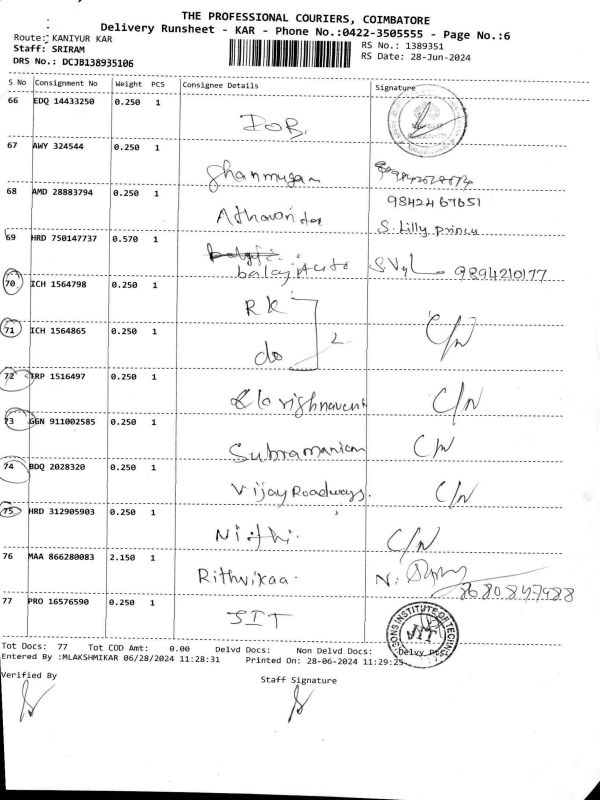 THE PROFESSIONAL COURIERS, COIMBATORE
Delivery Runsheet - KAR - Phone No.:0422-3505555 - Page No.:6
Route: KANIYUR KAR
RS No.: 1389351
Staff: SRIRAM
RS Date: 28-Jun-2024
DRS No.: DCJB138935106
S No Consignment No Weight PCS Consignee Details Signature
66 EDQ 14433250 0.250 1
IOB.
67 AWY 324544 0.250 1
Shanmugam
68 AMD 28883794 0.250 1
9842467651
Athavan
S. Lilly prince
69 HRD 750147737 0.570 1
balaji Auto 9894210177
70 ICH 1564798 0.250 1
RK
71 ICH 1564865 0.250 1
2 C/N
do
72 TRP 1516497 0.250 1
C/N
73 GGN 911002585 0.250 1
Subramaniam C/N
74 BDQ 2028320 0.250 1
Vijay Roadways. C/N
75 HRD 312905903 0.250 1
Nithi. C/N
76 MAA 866280083 2.150 1
Rithvikaa. N.
77 PRO 16576590 0.250 1
JIT
JIT
Tot Docs: 77 Tot COD Amt: 0.00 Delvd Docs: Non Delvd Docs: Delvy Pct:
Entered By :MLAKSHMIKAR 06/28/2024 11:28:31 Printed On: 28-06-2024 11:29:25
Verified By
Staff Signature